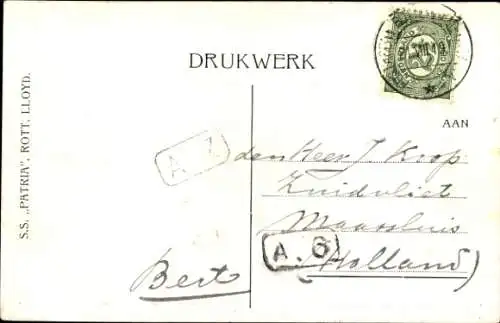 DRUKWERK
AAN
S.S. „PATRIA", ROTT. LLOYD.
A
den Heer J. Koop
Zuidvliet
Maassluis
(Holland)
A. 6
Bert